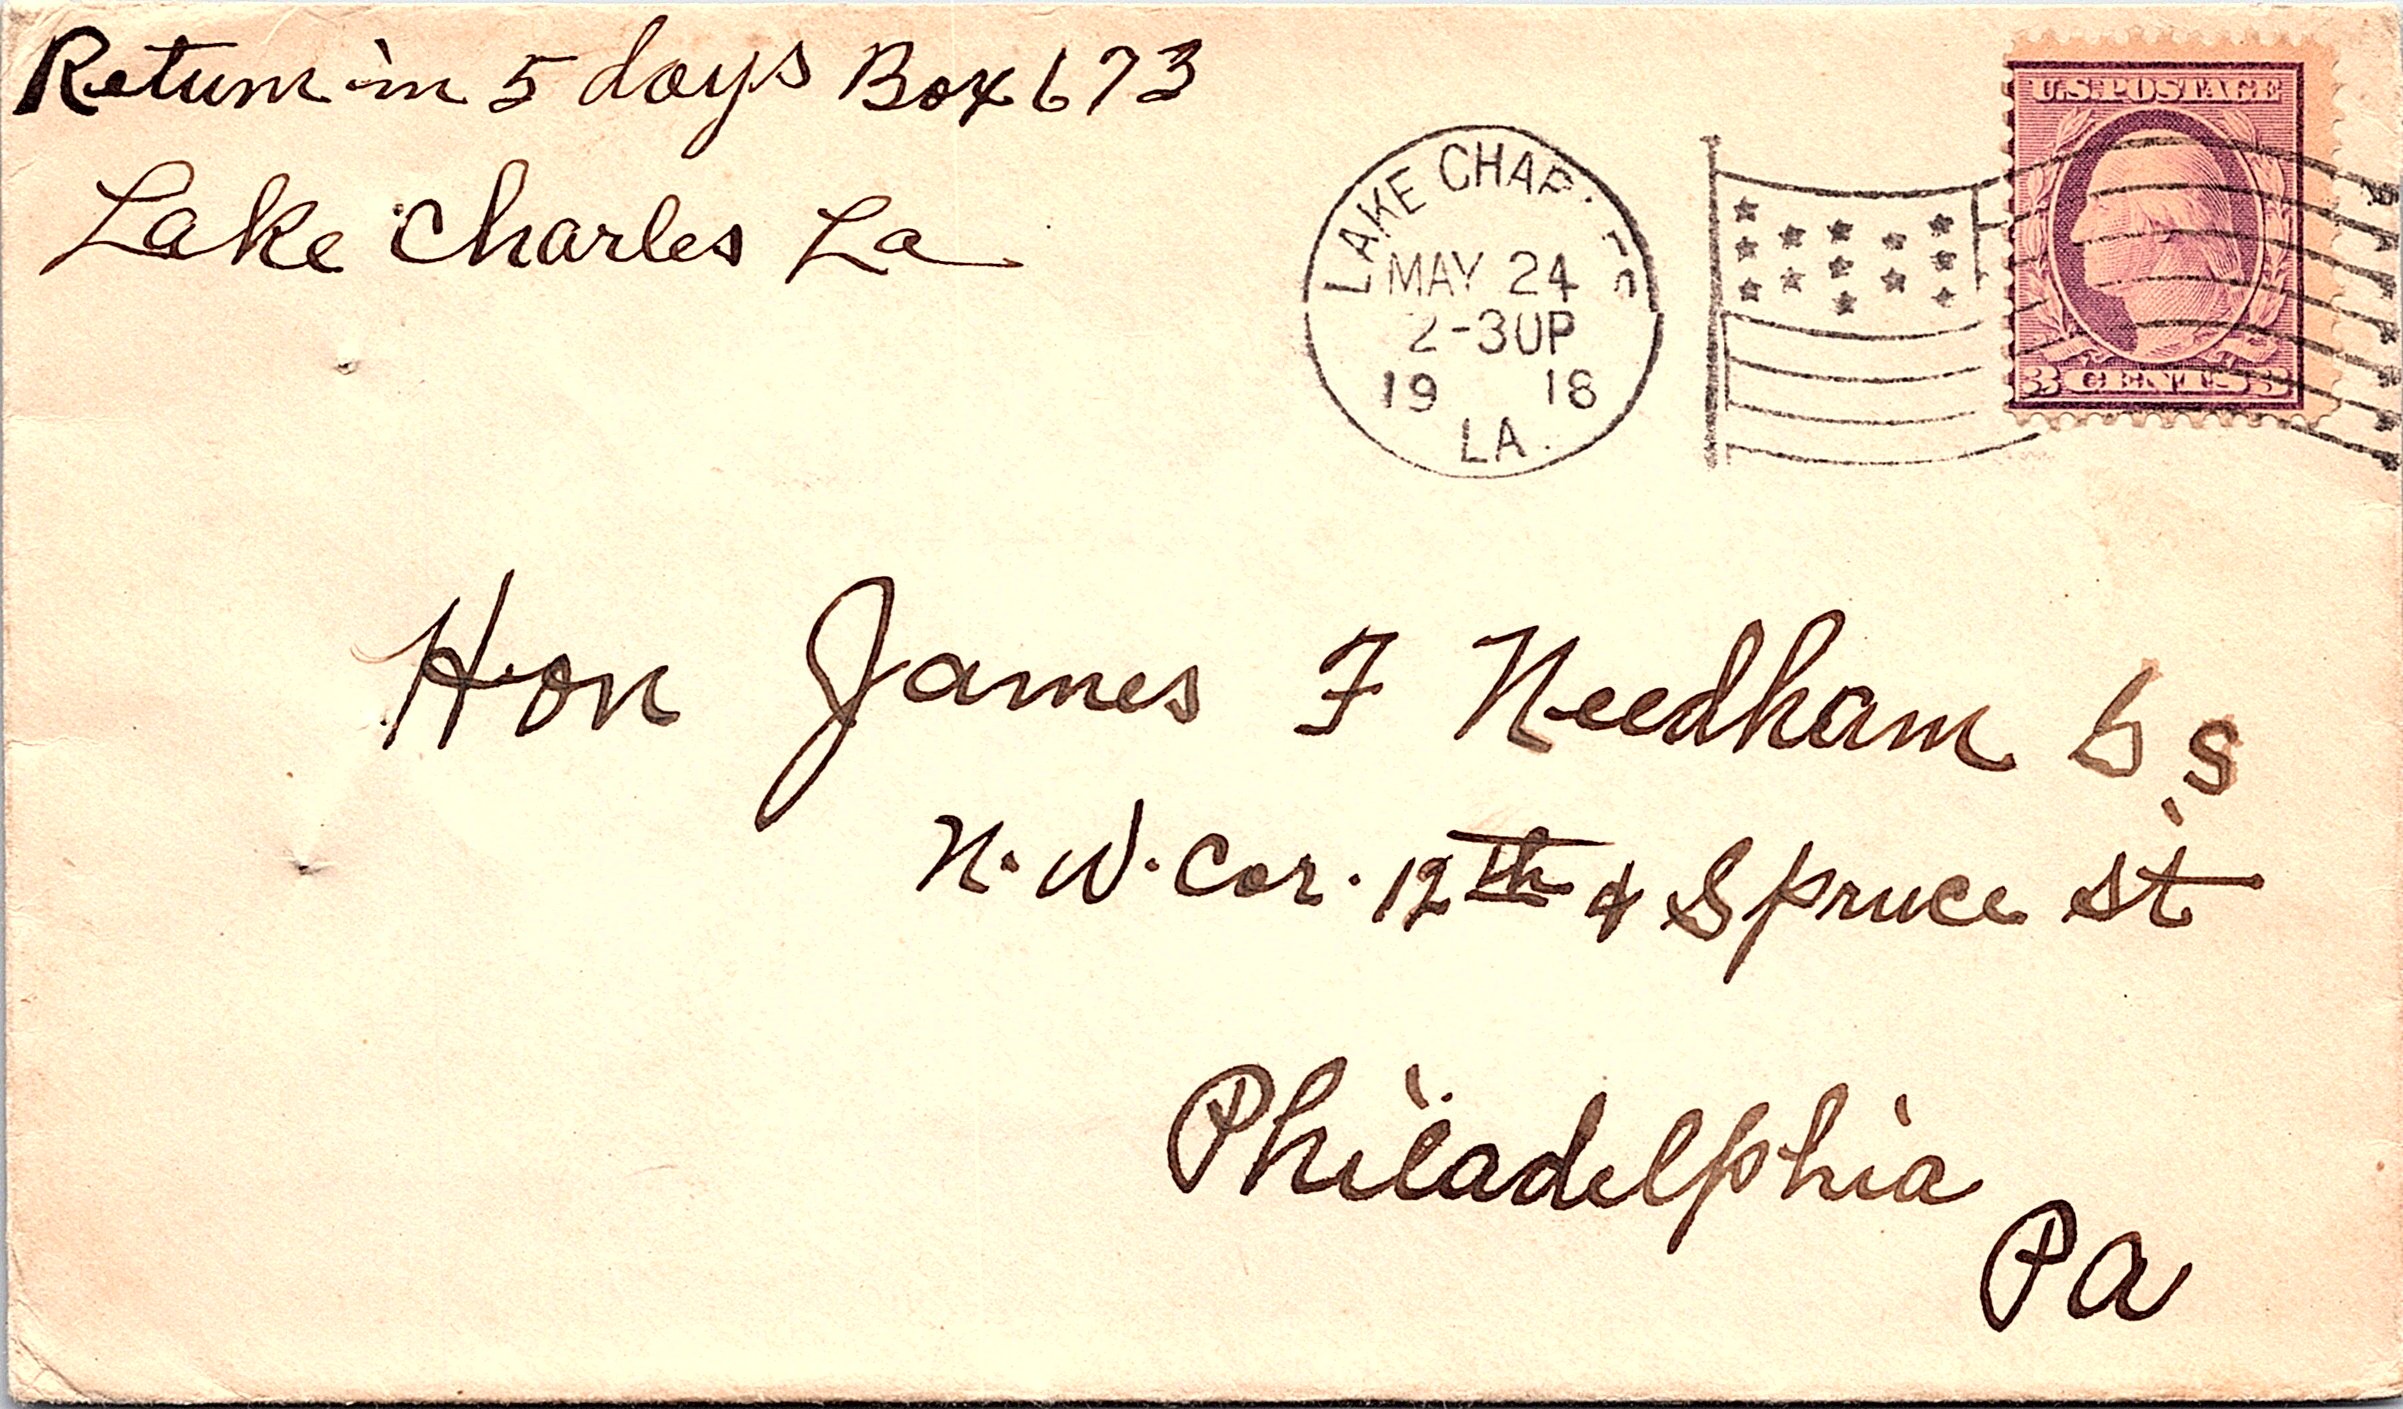 Return in 5 days Box 673
Lake Charles La
U.S. POSTAGE
3 CENTS 3
LAKE CHARLES
MAY 24
2-30P
1918
LA.
Hon James F Needham
N. W. Cor. 12th & Spruce St
Philadelphia
Pa